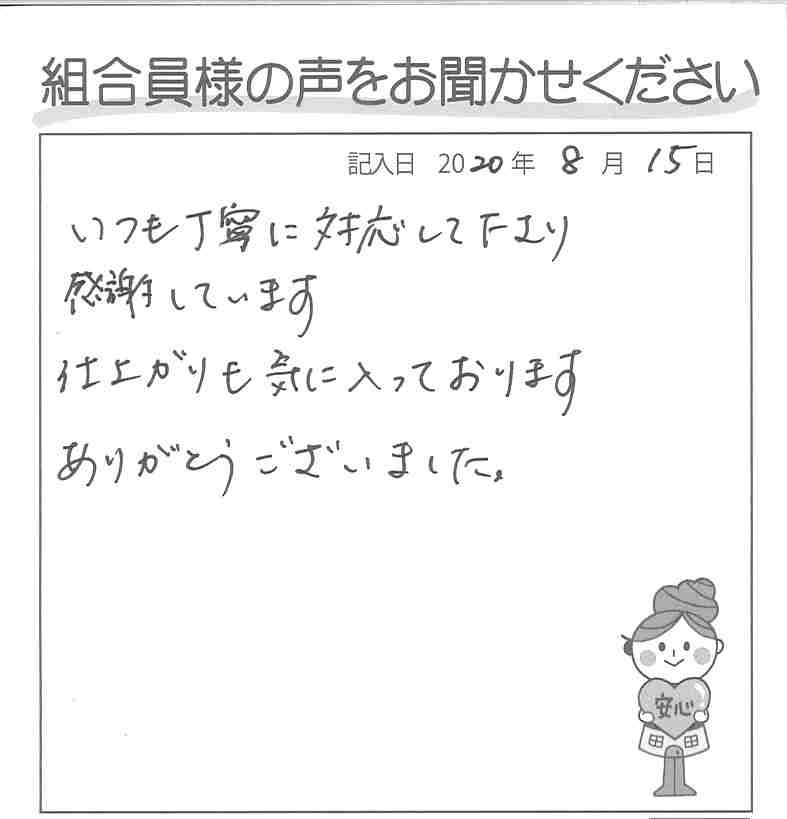 組合員様の声をお聞かせください
記入日 2020年 8月 15日
いつも丁寧に対応して下さり
感謝しています
仕上がりも気に入っております
ありがとうございました。
安心